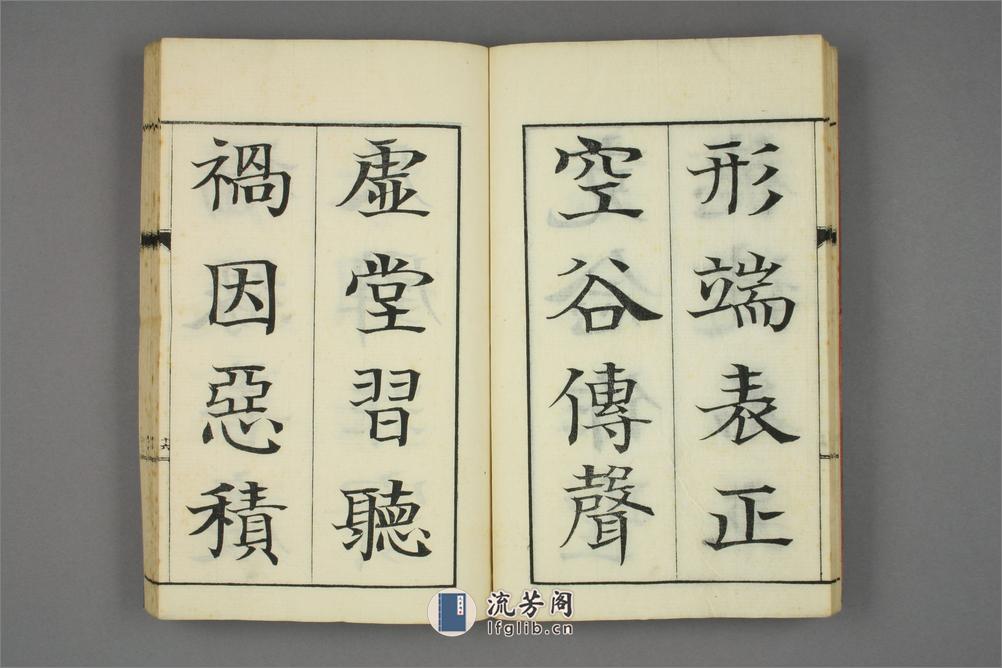 形端表正
空谷傳聲
虛堂習聽
禍因惡積
流芳阁
lfglib.cn